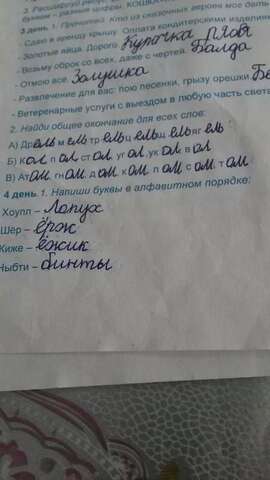 3. Расшифруй
буквам – разные цифры. КОШКА
3 день. 1. Прочитай. Кто из сказочных героев мог дать
- Сдаю в аренду крышу. Оплата кондитерскими изделиями
- Золотые яйца. Дорого. Курочка Ряба
- Возьму оброк со всех, даже с чертей. Балда
- Отмою все. Золушка
- Развлечение для вас: пою песенки, грызу орешки. Бе
- Ветеринарные услуги с выездом в любую часть света
2. Найди общее окончание для всех слов:
А) Др ель м ель тр ель щ ель яг ель
Б) К ол п ол ст ол, уг ол, ук ол в ол
В) Ат ом гн ом, д ом к ом п ом с ом, т ом
4 день. 1. Напиши буквы в алфавитном порядке:
Хоупл – Лопух
Шер – ёрж
Киже – ёжик
Ныбти – бинты